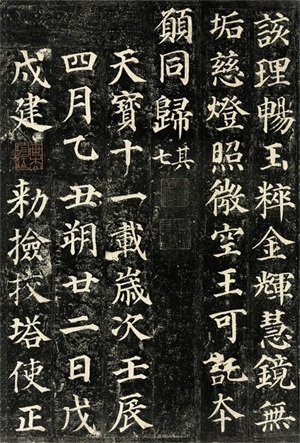 該理暢玉粹金輝慧鏡無
垢慈燈照微空王可託夲
願同歸其七
天寶十一載歲次壬辰
四月乙丑朔廿二日戊
戌建 勑撿挍塔使正